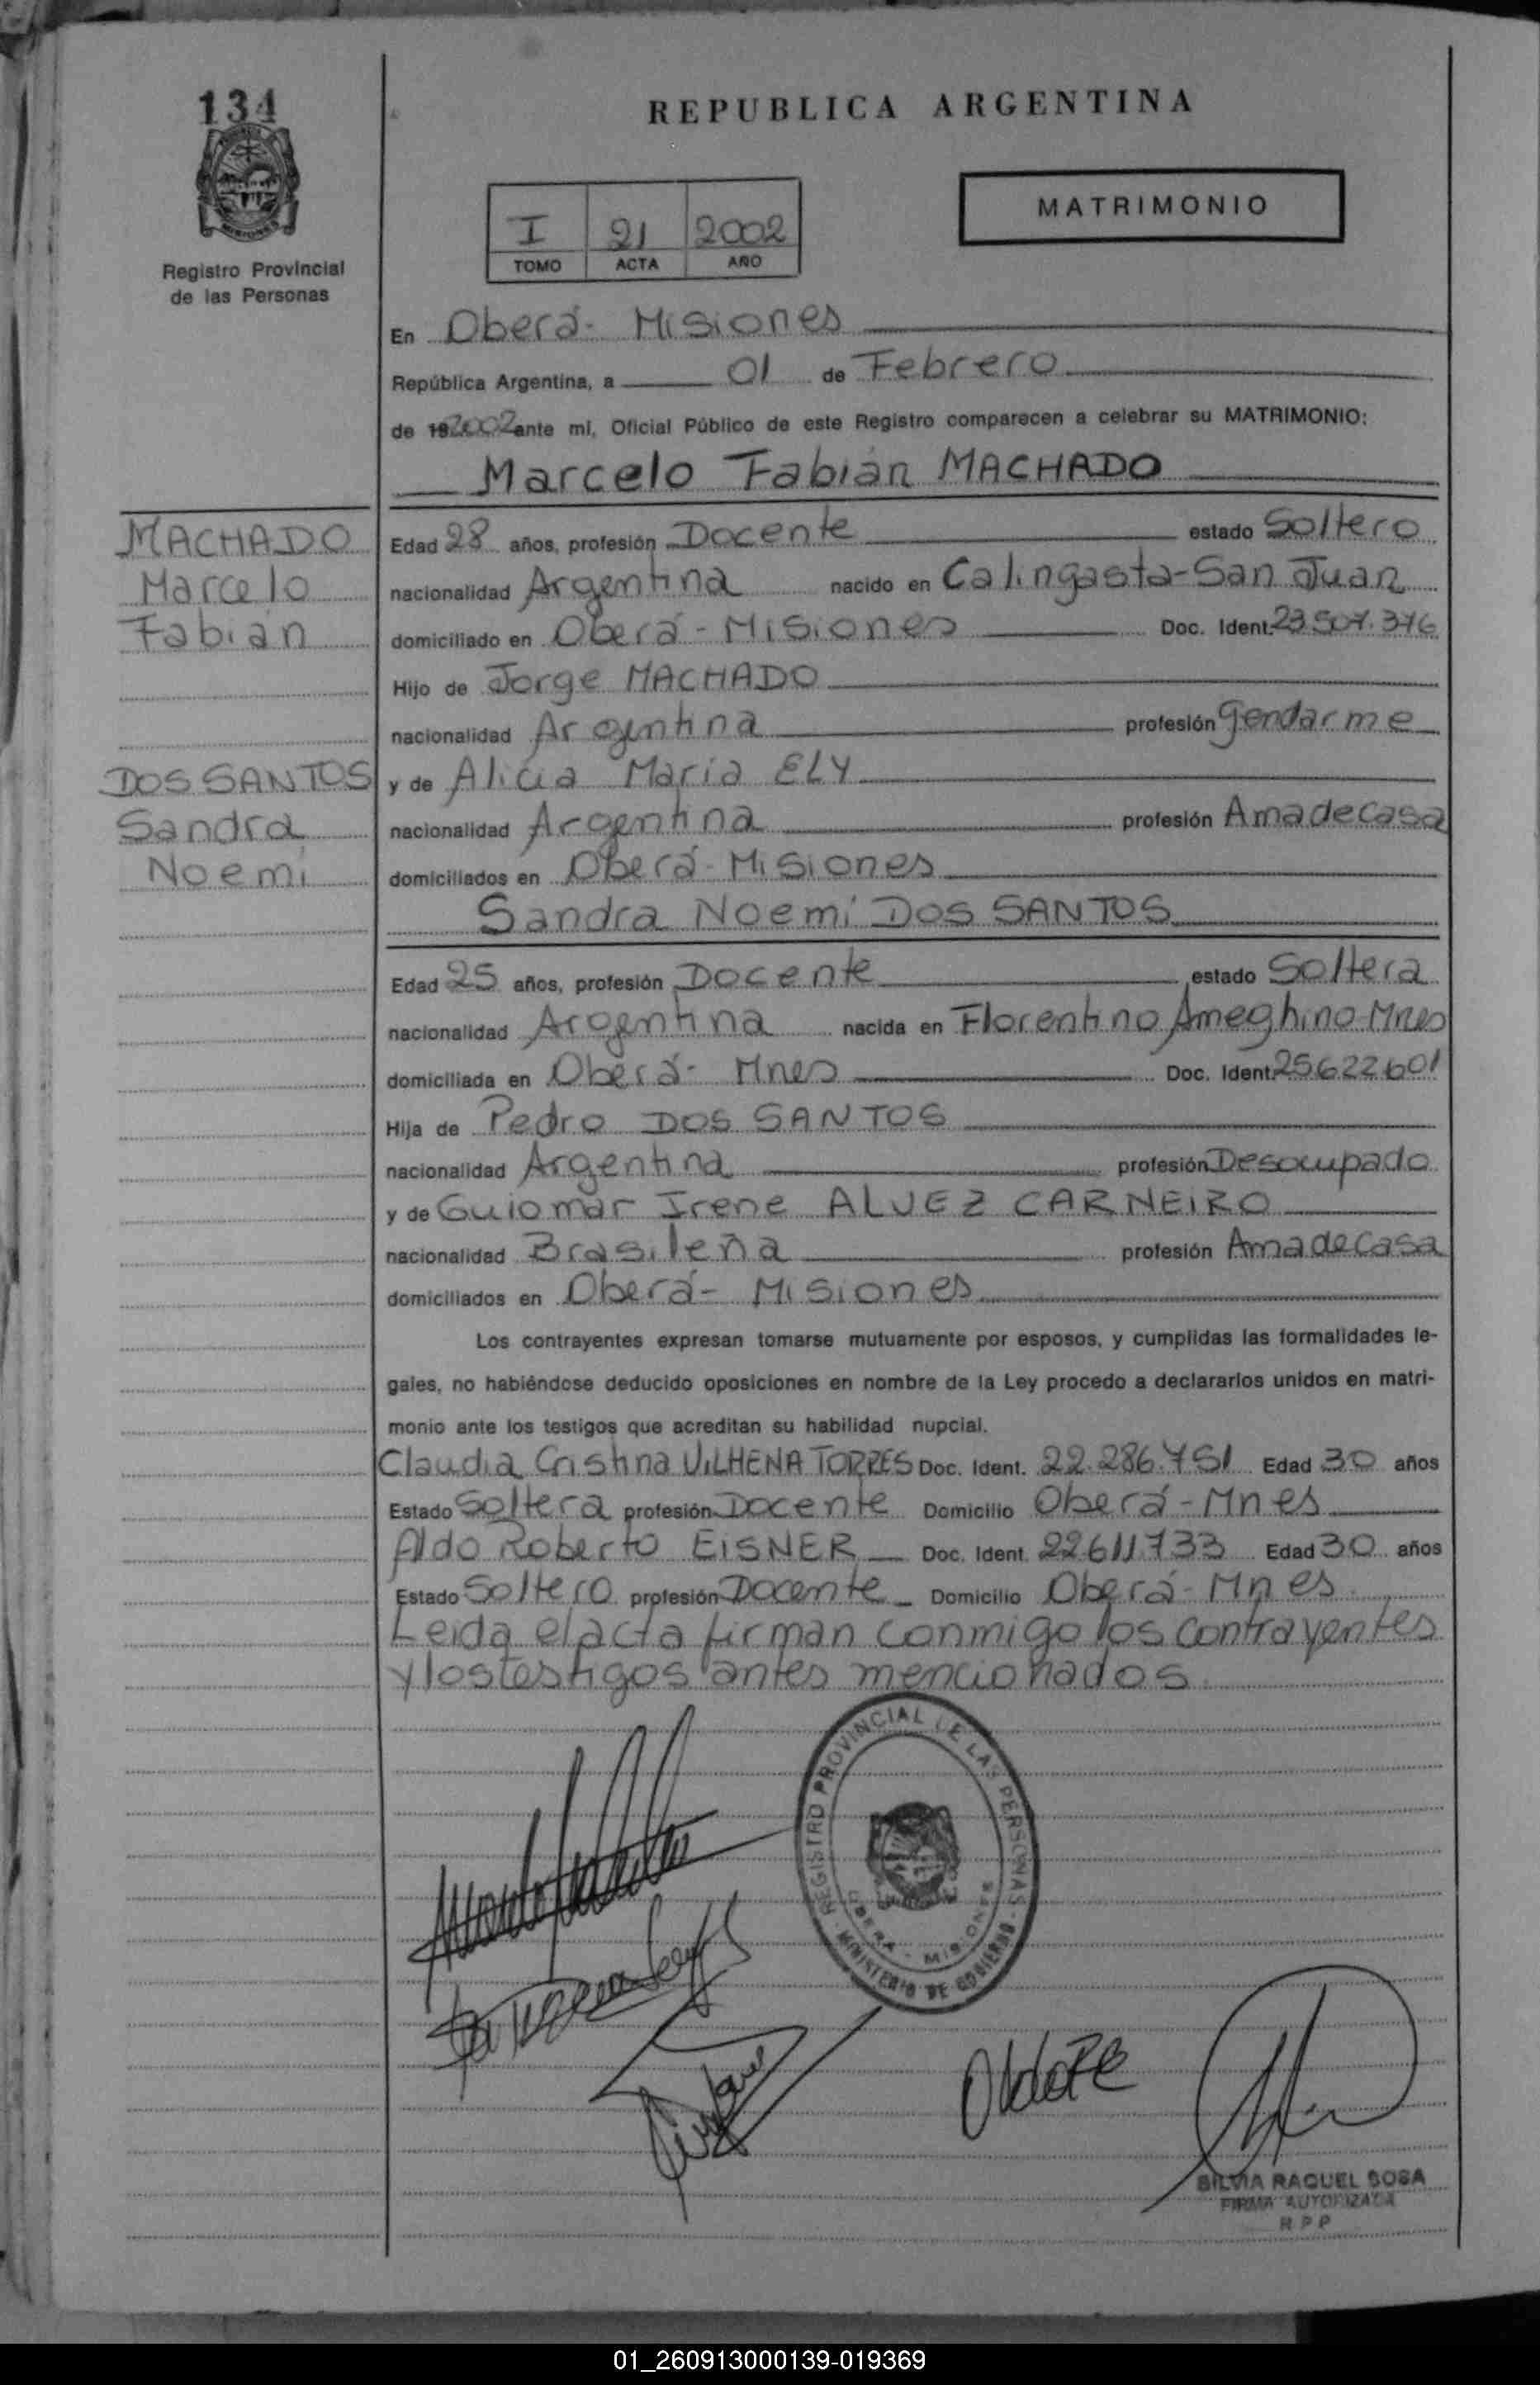 134
REPUBLICA ARGENTINA
MATRIMONIO
I 21 2002
TOMO ACTA AÑO
Registro Provincial
de las Personas
En Oberá- Misiones
República Argentina, a 01 de Febrero
de 192002 ante mí, Oficial Público de este Registro comparecen a celebrar su MATRIMONIO:
Marcelo Fabián MACHADO
MACHADO
Marcelo
Fabián
Edad 28 años, profesión Docente estado Soltero
nacionalidad Argentina nacido en Calingasta-San Juan
domiciliado en Oberá-Misiones Doc. Ident. 23.507.376
Hijo de Jorge MACHADO
nacionalidad Argentina profesión Gendarme
DOS SANTOS
Sandra
Noemí
y de Alicia María ELY
nacionalidad Argentina profesión Amadecasa
domiciliados en Oberá-Misiones
Sandra Noemí DOS SANTOS
Edad 25 años, profesión Docente estado Soltera
nacionalidad Argentina nacida en Florentino Ameghino-Mnes
domiciliada en Oberá- Mnes Doc. Ident. 25622601
Hija de Pedro DOS SANTOS
nacionalidad Argentina profesión Desocupado
y de Guiomar Irene ALVEZ CARNEIRO
nacionalidad Brasileña profesión Amadecasa
domiciliados en Oberá- Misiones
Los contrayentes expresan tomarse mutuamente por esposos, y cumplidas las formalidades le-
gales, no habiéndose deducido oposiciones en nombre de la Ley procedo a declararlos unidos en matri-
monio ante los testigos que acreditan su habilidad nupcial.
Claudia Cristina VILHENA TORRES Doc. Ident. 22.286.751 Edad 30 años
Estado Soltera profesión Docente Domicilio Oberá-Mnes
Aldo Roberto EISNER Doc. Ident. 22611733 Edad 30 años
Estado Soltero profesión Docente Domicilio Oberá-Mnes
Leida el acta firman conmigo los contrayentes
y los testigos antes mencionados
REGISTRO PROVINCIAL DE LAS PERSONAS
OBERA - MISIONES
MINISTERIO DE GOBIERNO
SILVIA RAQUEL SOSA
FIRMA AUTORIZADA
R P P
01_260913000139-019369